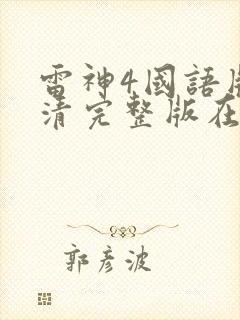 雷神4國語
清完整版在
郭彦波